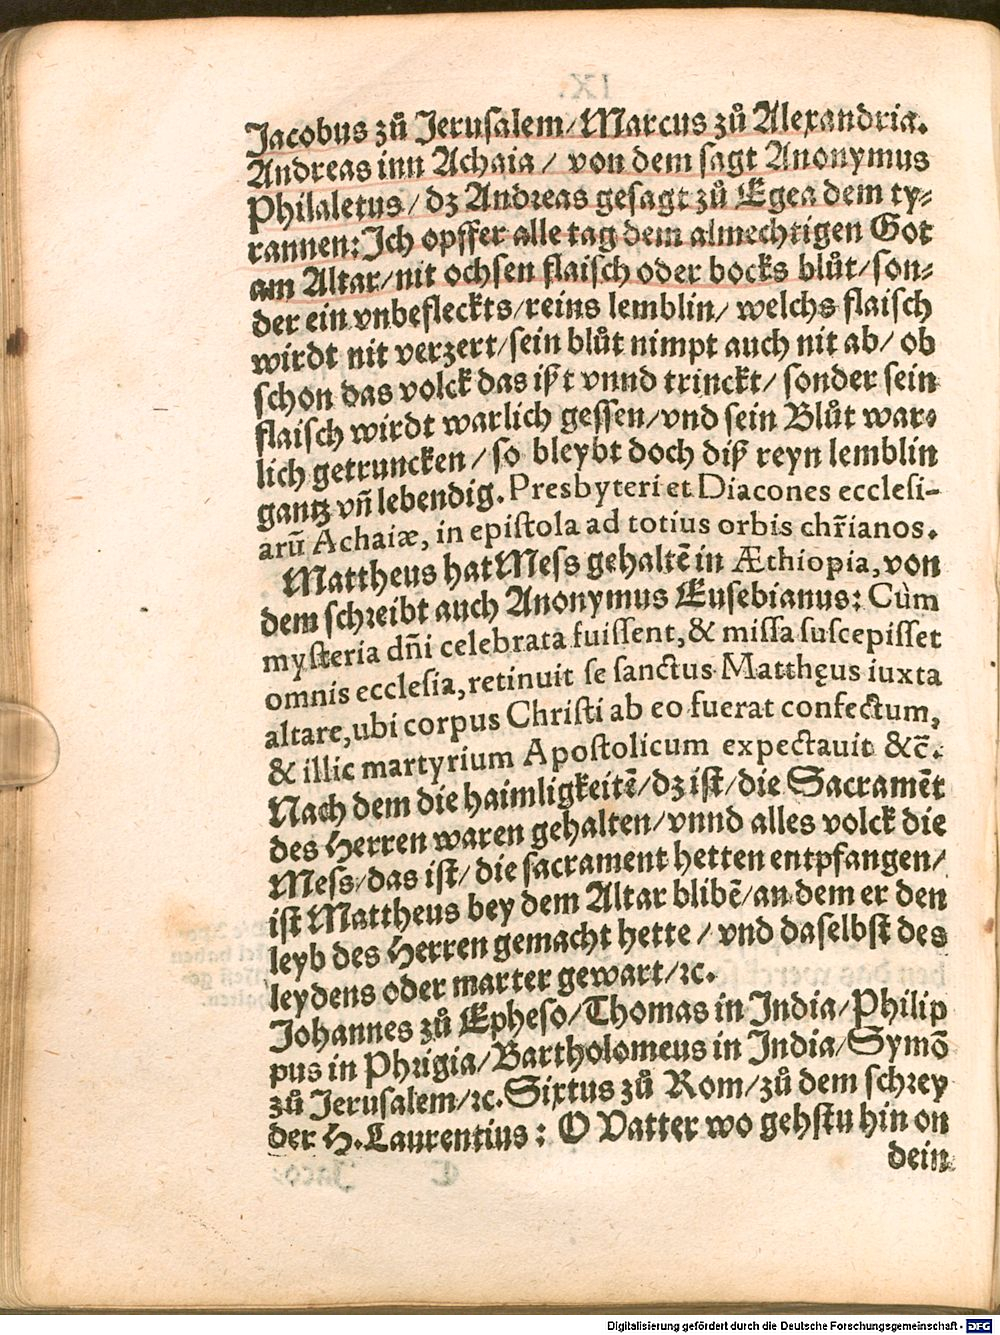 Jacobus zů Jerusalem/Marcus zů Alexandria.
Andreas inn Achaia/ von dem sagt Anonymus
Philaletus/dz Andreas gesagt zů Egea dem ty⸗
rannen: Ich opffer alle tag dem almechtigen Got
am Altar/nit ochsen flaisch oder bocks blůt/son⸗
der ein vnbefleckts/reins lemblin/ welchs flaisch
wirdt nit verzert/sein blůt nimpt auch nit ab/ ob
schon das volck das ißt vnnd trinckt/ sonder sein
flaisch wirdt warlich gessen/vnd sein Blůt war⸗
lich getruncken/so bleybt doch diß reyn lemblin
gantz vñ lebendig. Presbyteri et Diacones ecclesi-
arũ Achaiæ, in epistola ad totius orbis chr̃ianos.
Mattheus hat Mess gehaltẽ in Æthiopia, von
dem schreibt auch Anonymus Eusebianus: Cùm
mysteria dñi celebrata fuissent, & missa suscepisset
omnis ecclesia, retinuit se sanctus Matthęus iuxta
altare, ubi corpus Christi ab eo fuerat confectum,
& illic martyrium Apostolicum expectauit &c̃.
Nach dem die haimligkeitẽ/dz ist/die Sacramẽt
des Herren waren gehalten/vnnd alles volck die
Mess/das ist/ die sacrament hetten entpfangen/
ist Mattheus bey dem Altar blibẽ/an dem er den
leyb des Herren gemacht hette/vnd daselbst des
leydens oder marter gewart/ꝛc.
Johannes zů Epheso/Thomas in India/Philip
pus in Phrigia/Bartholomeus in India/Symõ
zů Jerusalem/ꝛc. Sixtus zů Rom/zů dem schrey
der H. Laurentius: O Vatter wo gehstu hin on
dein
Digitalisierung gefördert durch die Deutsche Forschungsgemeinschaft - DFG